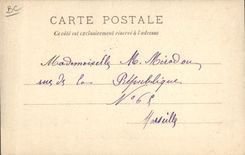 BC
CARTE POSTALE
Ce côté est exclusivement réservé à l'adresse
Mademoiselle M. Miradou
rue de la République
N° 65
Marseille